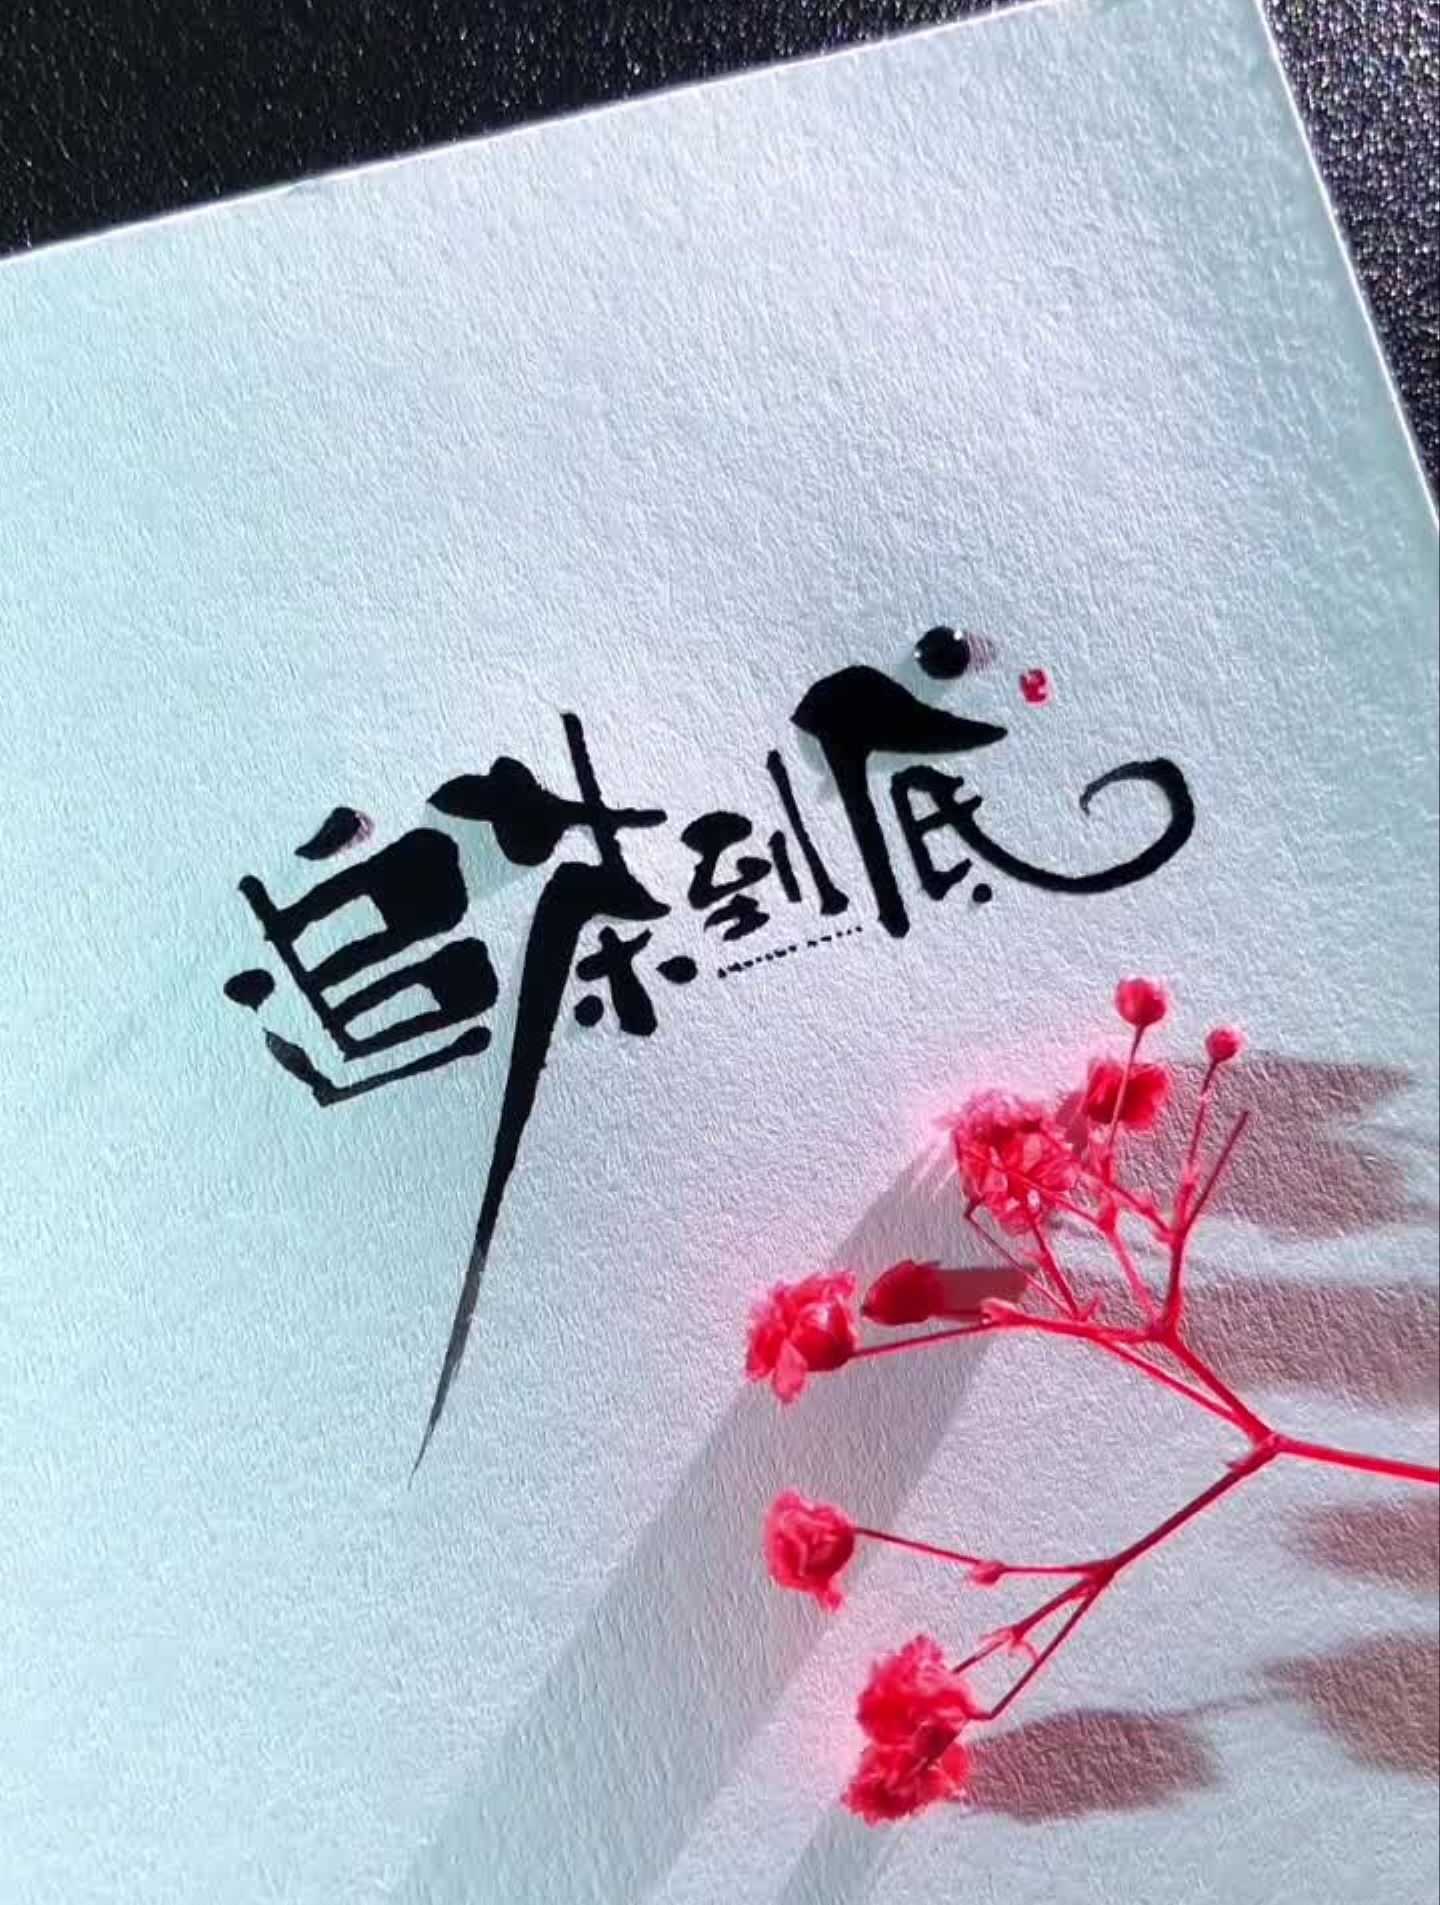 追茶到底